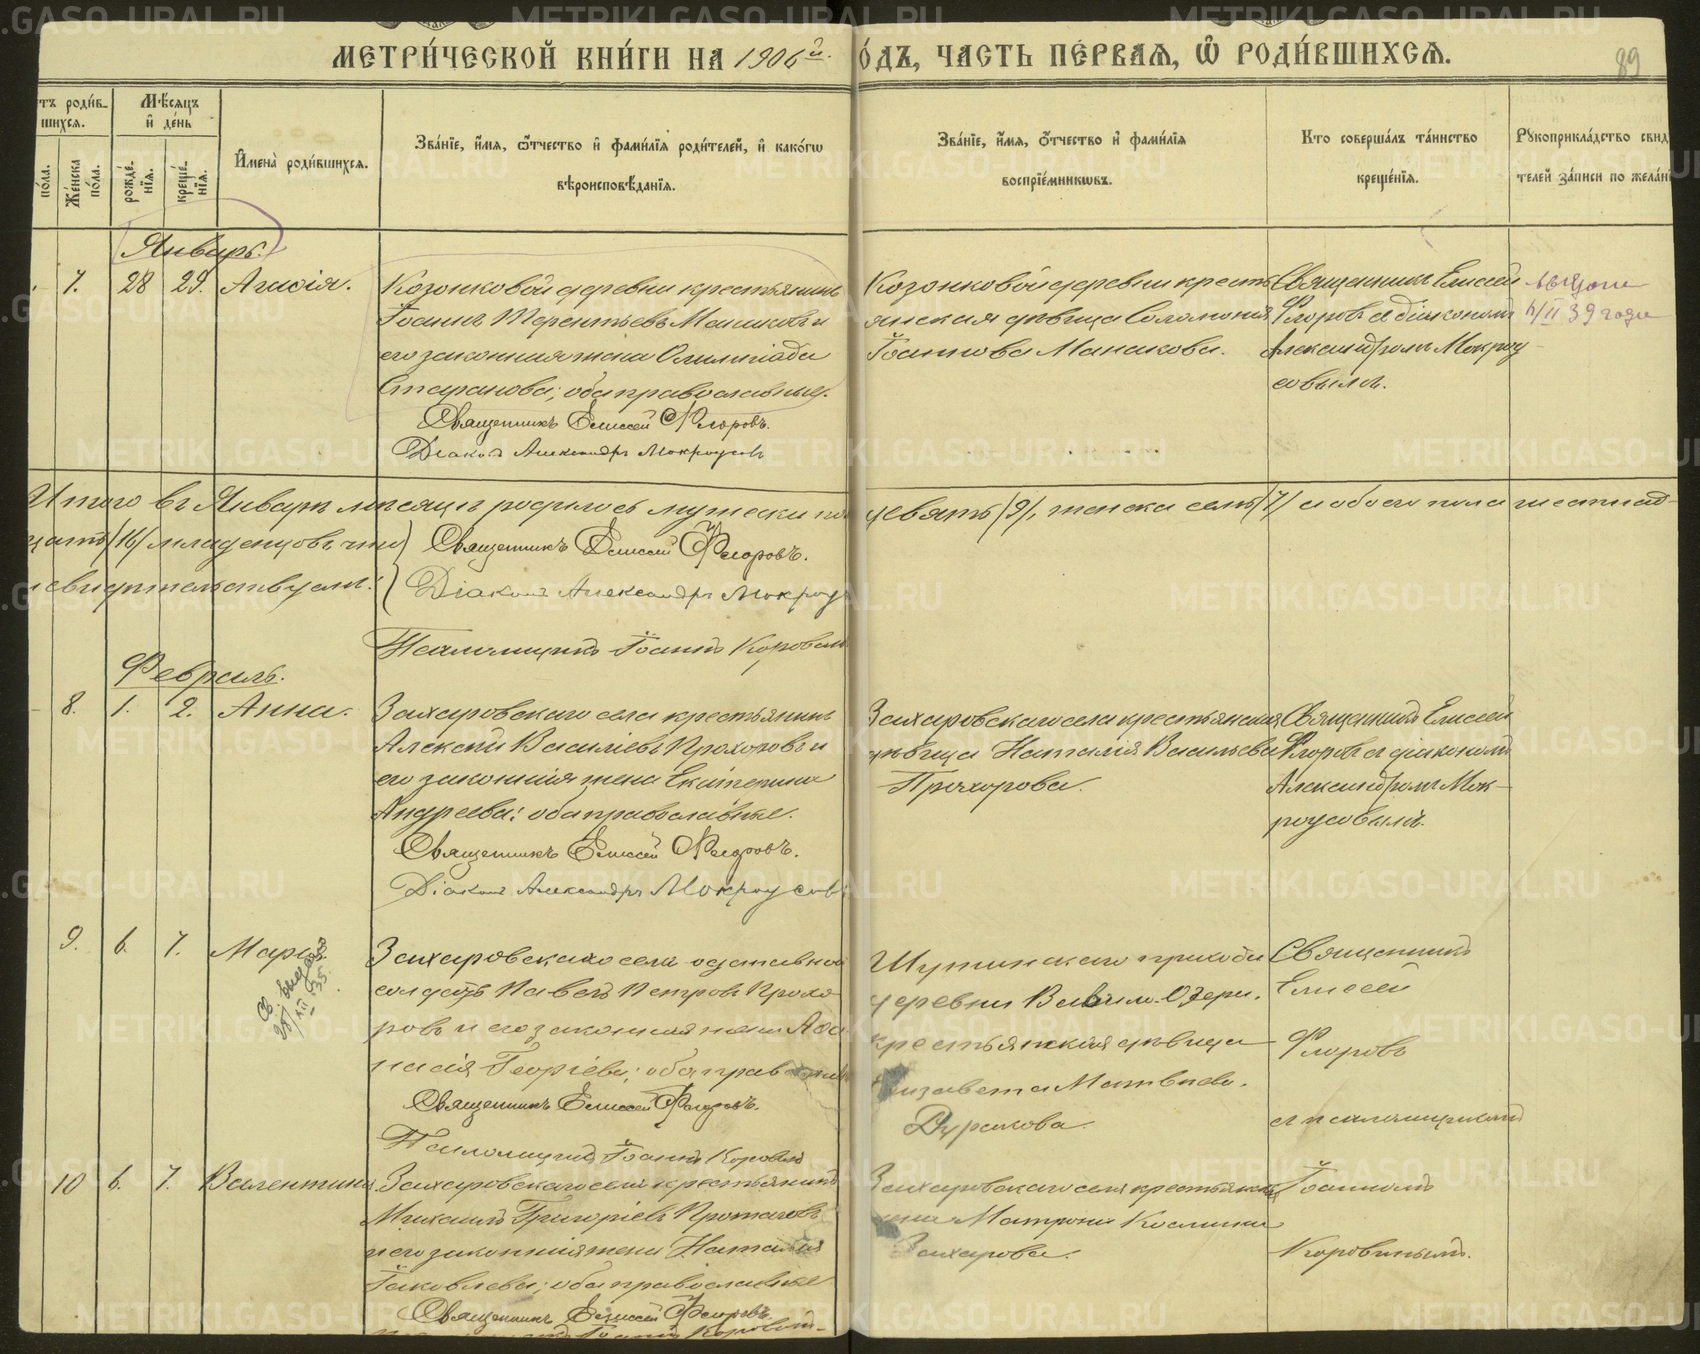 МЕТРИ́ЧЕСКОЙ КНИ́ГИ НА 1906й. ОДЪ, ЧАСТЬ ПЕ́РВАѦ, Ѿ РОДИ́ВШИХСѦ.
89
тъ роди́в-
шихсѧ.
Мѣ́сяцъ
и҆ де́нь
по́ла.
Же́нска
по́ла.
рожде́-
нїѧ.
креще́-
нїѧ.
И҆мена̀ роди́вшихсѧ.
Зва́нїе, и҆́мѧ, ѻ҆́тчество и҆ фами́лїѧ роди́телей, и҆ како́гѡ
вѣроисповѣ́данїѧ.
Зва́нїе, и҆́мѧ, ѻ҆́тчество и҆ фами́лїѧ
воспрїе́мникѡвъ.
Кто соверша́лъ та́инство
креще́нїѧ.
Рꙋкоприкла́дство свид
телей за́писи по жела́ні
Январь.
7. 28 29. Агнія.
Козонковой деревни крестьянинъ
Іоаннъ Терентьевъ Манаковъ и
его законная жена Олимпіада
обаправославные.
Священникъ Елисей Флоровъ.
Діаконъ Александръ Мокроусовъ
Козонковой деревни кресть
янская дѣвица Соломонія
Іоаннова Манакова.
Священникъ Елисей
Флоровъ с діакономъ
Александромъ Мокроу-
совымъ.
4/II 39 года
Итого въ Январѣ мѣсяцѣ родилось мужеска по девять /9/, женска семь /7/ и обоего пола шестнад-
цать /16/ младенцовъ что
свидѣтельствуемъ:
Священникъ Елисей Флоровъ.
Діаконъ Александръ Мокроу
Псаломщикъ Іоаннъ Коровинъ
Февраль.
8. 1. 2. Анна.
Захаровскаго села крестьянинъ
Алексѣй Василіевъ Прохоровъ и
его законная жена Екатерина
Андреева; оба православные.
Священникъ Елисей Флоровъ.
Діаконъ Александръ Мокроусовъ
Захаровскаго села крестьянская
дѣвица Наталія Васильева
Прохорова.
Священникъ Елисей
Флоровъ с діакономъ
Александромъ Мок-
роусовымъ.
9. 6. 7. Марія
Св. выдано
Захаровскаго села отставной
солдатъ Павелъ Петровъ Прохо
ровъ и его законная жена Афа
насія Георгіева; оба
Священникъ Елисей Флоровъ.
Псаломщикъ Іоаннъ Коровинъ
прихода
деревни Вавило-Озери.
крестьянская дѣвица
Елизавета Матвѣева
Дуракова
Священникъ
Елисей
Флоровъ
с псаломщикомъ
Іоанномъ
Коровинымъ.
10 6. 7. Валентина
Захаровскаго села крестьянинъ
Михаилъ Григоріевъ
и его законная жена Наталія
Іаковлева; оба православные
Священникъ Елисей Флоровъ.
Захаровскаго села крестьянская
жена Матрона Косьмина
Захарова.
METRIKI.GASO-URAL.RU